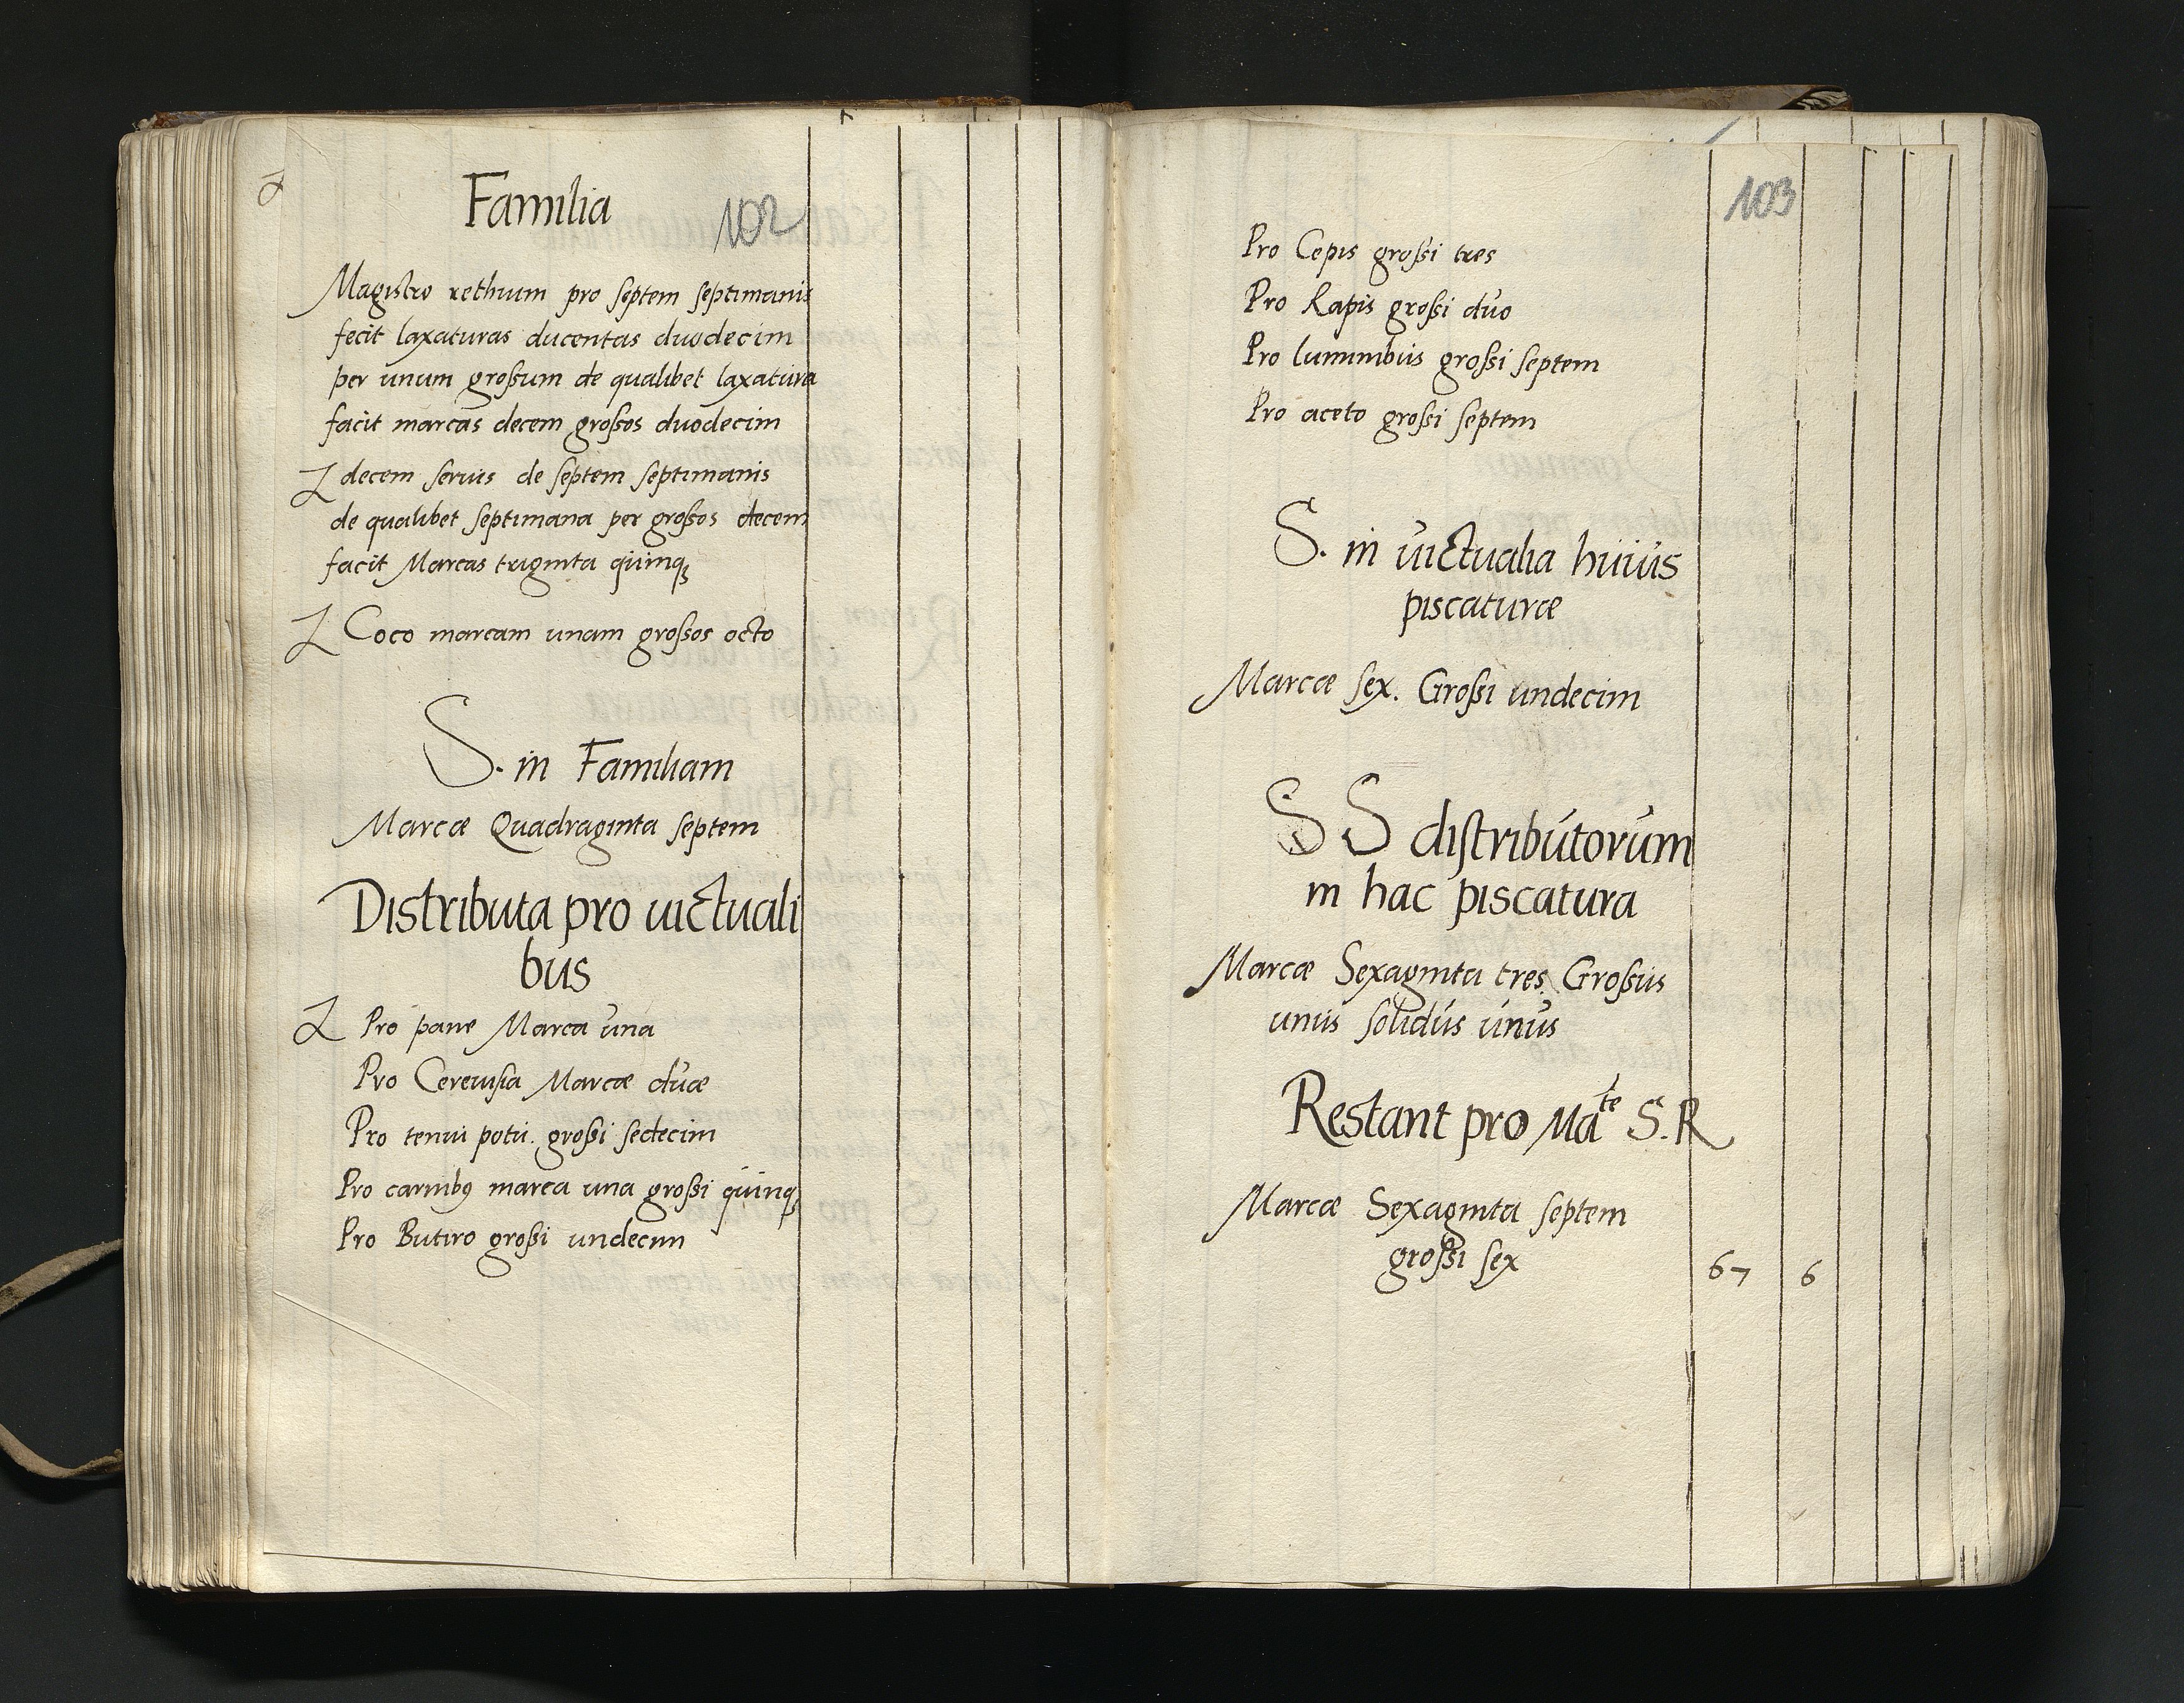 Familia
102
Magistro rethium pro septem septimanis
fecit laxaturas ducentas duodecim
per unum grossum de qualibet laxatura
facit marcas decem grossos duodecim
decem servis de septem septimanis
de qualibet septimana per grossos decem
facit Marcas triginta quinq3
Coco marcam unam grossos octo
S. in Familiam
Marcæ Quadraginta septem
Distributa pro uictuali
bus
Pro pane Marca una
Pro Cereuisia Marcæ duæ
Pro tenui potu. grossi sedecim
Pro carnibꝫ marca una grossi quinq3
Pro Butiro grossi undecim
103
Pro Cepis grossi tres
Pro Rapis grossi duo
Pro luminibus grossi septem
Pro aceto grossi septem
S. in uictualia huius
piscaturæ
Marcæ sex. Grossi undecim
S S distributorum
in hac piscatura
Marcæ Sexaginta tres Grossus
unus solidus unus
Restant pro Mate S. R
Marcæ Sexaginta septem
grossi sex 67 6